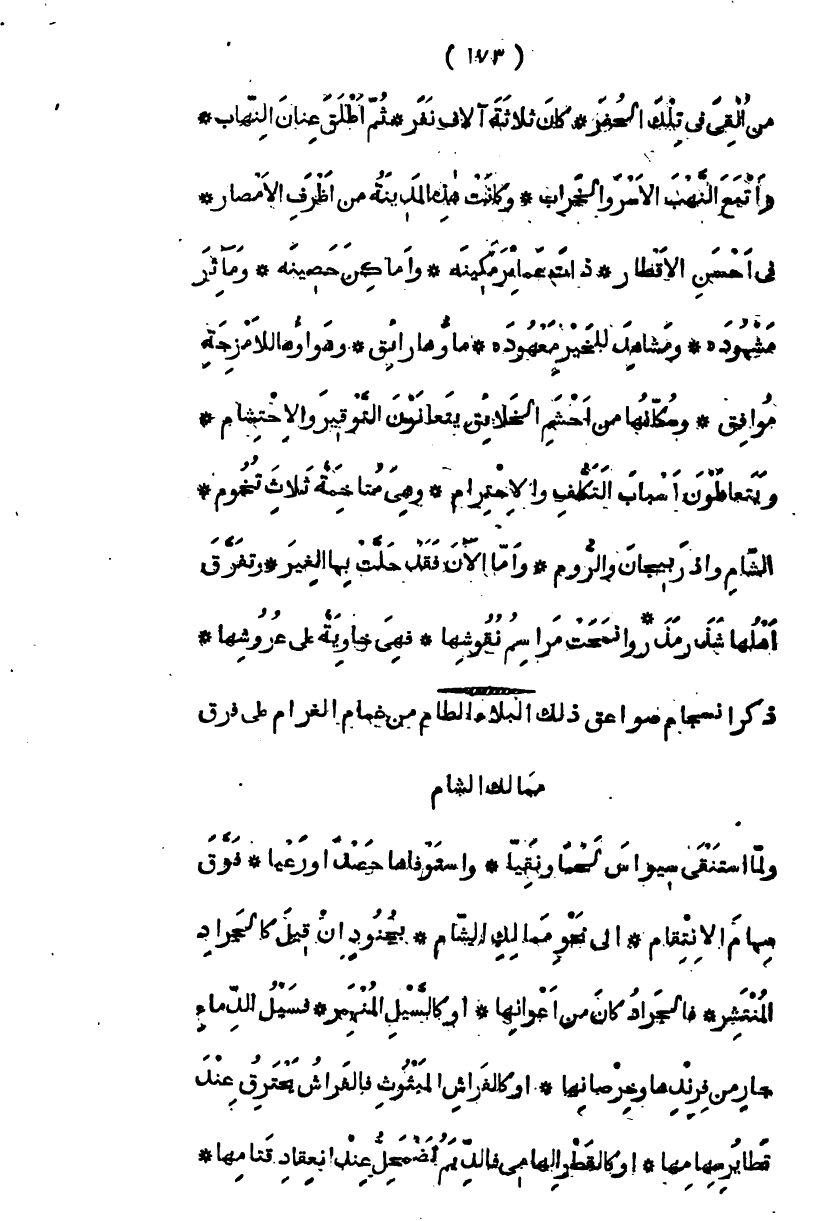 ( ١٧٣ )
من أُلْقِىَ فى تِلْكَ الحُفَرِ * كانَ ثلاثَةَ آلافِ نَفَر * ثُمّ أطْلَقَ عِنانَ النِّهاب *
وأتْبَعَ النَّهْبَ الاَسْرَ والخَراب * وكانَتْ هٰذِهِ المَدِينَةُ من اَظْرَفِ الاَمْصار *
فى اَحْسَنِ الاَقْطار * ذاتَ عَمائِرَ مَكِينَه * واَماكِنَ حَصِينَه * ومَآثِرَ
مَشْهُودَه * ومَشاهِدَ للخَيْرِ مَعْهُودَه * ماؤُها رائِق * وهَواؤُها للاَمْزِجَةِ
مُوافِق * وسُكّانُها من اَحْشَمِ الخَلائِقِ يتَعانَوْنَ التَّوْقِيرَ والاِحْتِشام *
ويَتَعاطَوْنَ اَسْبابَ التَّكَلُّفِ والاِحْتِرام * وهِىَ مُتاخِمَةٌ ثَلاثَ تُخُوم *
الشّامِ واذرَبيجانَ والرُّوم * واَمّا الآنَ فَقَدْ حَلَّتْ بِها الغِيَر * وتفَرَّقَ
اَهْلُها شَذَرَ مَذَر * وانمَحَتْ مَراسِمُ نُقُوشِها * فهِىَ خاوِيَةٌ على عُرُوشِها *
ذكر انسجام صواعق ذلك البلاء الطام من غمام الغرام على فرق
ممالك الشام
ولمّا استَنْقَى سِيواسَ لَحْمًا ونَقِيّا * واستَوْفاها حَصْدًا ورَعْيا * فَوَّقَ
سِهامَ الاِنْتِقام * الى نَحْوِ مَمالِكِ الشّام * بجُنُودٍ اِنْ قِيلَ كالجَرادِ
المُنْتَشِرِ * فالجَرادُ كانَ من اَعْوانِها * اوكالسَّيْلِ المُنْهَمِرِ * فسَيْلُ الدِّماءِ
جارٍ من فِرِنْدِها وخِرْصانِها * اوكالفَراشِ المَبْثُوثِ فالفَراشُ يَحْتَرِقُ عِنْدَ
تَطايُرِ سِهامِها * اوكالقَطْرِ الهامِى فالدِّيَمُ تَضْمَحِلُّ عِنْدَ انعِقادِ قَتامِها *